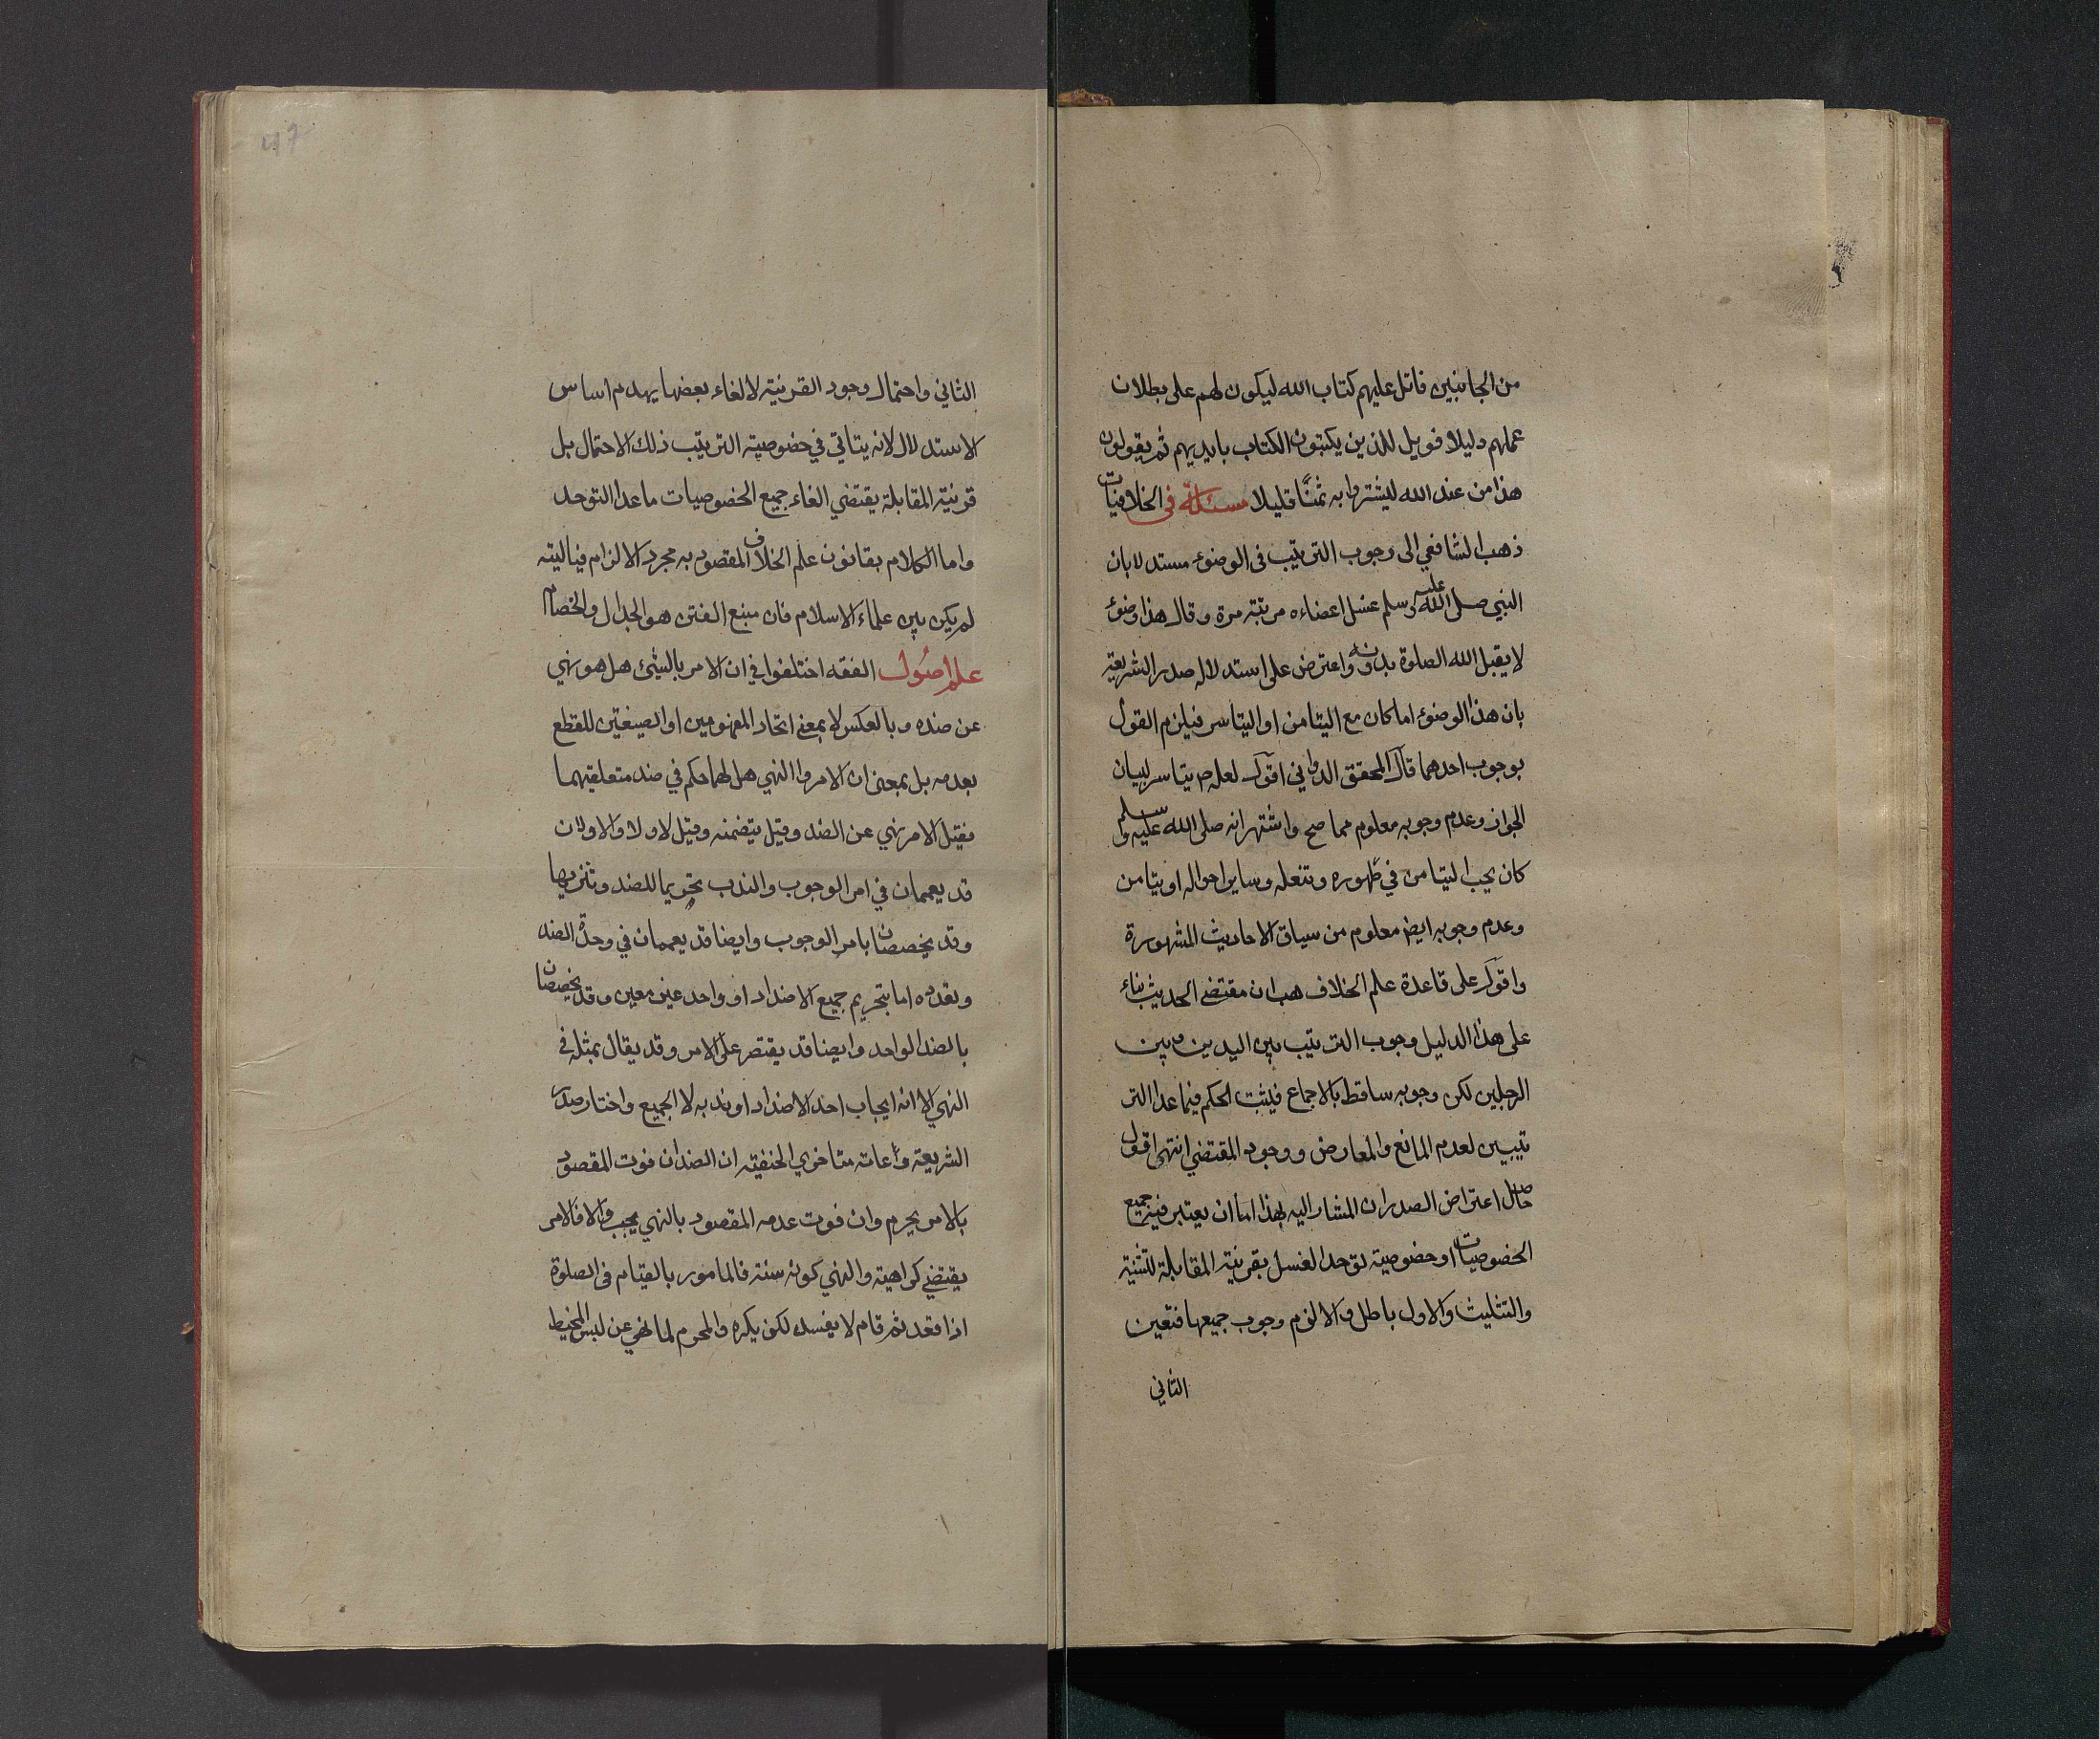 من الجانبين فاتل عليهم كتاب الله ليكون لهم على بطلان
عملهم دليلا فويل للذين يكتبون الكتاب بايديهم ثم يقولون
هذا من عند الله ليشتروا به ثمنًا قليلا مسئلة فى الخلافيات
ذهب الشافعي الى وجوب الترتيب فى الوضوء مستدلا بان
النبي صلى الله عليه وسلم غسل اعضاءه مرتبة مرة وقال هذا وضوء
لا يقبل الله الصلوة بدونه واعترض على استدلاله صدر الشريعة
بان هذا الوضوء اما كان مع التيامن او التياسر فيلزم القول
بوجوب احدهما قال المحقق الدواني اقول لعله ص يتاسر لبيان
الجواز وعدم وجوبه معلوم مما صح واشتهر انه صلى الله عليه وسلم
كان يحب التيامن في طهوره وتنعله وساير احواله او يتامن
وعدم وجوبه ايض معلوم من سياق الاحاديث المشهورة
واقول على قاعدة علم الخلاف هب ان مقتضى الحديث بناء
على هذا الدليل وجوب الترتيب بين اليدين وبين
الرجلين لكن وجوبه ساقط بالاجماع فيثبت الحكم فيما عدا التر
تيبين لعدم المانع والمعارض ووجود المقتضي انتهى اقول
حاصل اعتراض الصدر ان المشار اليه بهذا اما ان يعتبر فيه جميع
الخصوصيات او خصوصية توحد الغسل بقرينة المقابلة للتثنية
والتثليث والاول باطل والا لزم وجوب جميعها فتعين
الثاني
47
الثاني واحتمال وجود القرينة لالغاء بعضها يهدم اساس
الاستدلال لانه يتاتي في خصوصية الترتيب ذلك الاحتمال بل
قرينة المقابلة يقتضي الغاء جميع الخصوصيات ما عدا التوحد
واما الكلام بقانون علم الخلاف المقصود به مجرد الالزام فياليته
لم يكن بين علماء الاسلام فان منبع الفتن هو الجدال والخصام
علم اصول الفقه اختلفوا في ان الامر بالشئ هل هو نهي
عن ضده وبالعكس لا بمعنى اتحاد المفهومين او الصيغتين للقطع
بعدمه بل بمعنى ان الامر والنهي هل لهما حكم في ضد متعلقيهما
فقيل الامر نهي عن الضد وقيل يتضمنه وقيل لا ولا والاولان
قد يعممان في امر الوجوب والندب تحويما للضد وتنزيها
وقد يخصصان بامر الوجوب وايضا قد يعممان في وحدة الضد
وتعدده اما بتحريم جميع الاضداد او واحد غير معين وقد يخصصان
بالضد الواحد وايضا قد يقتصر على الامر وقد يقال بمثله في
النهي الا انه ايجاب احد الاضداد او ندبه لا الجميع واختار صدر
الشريعة وعامة متاخري الحنفية ان الضد ان فوت المقصود
بالامر يحرم وان فوت عدمه المقصود بالنهي يجب والا فالامر
يقتضي كراهية والنهي كونه سنة فالمامور بالقيام فى الصلوة
اذا قعد ثم قام لا يفسد لكن يكره والمحرم لما نهي عن لبس المخيط